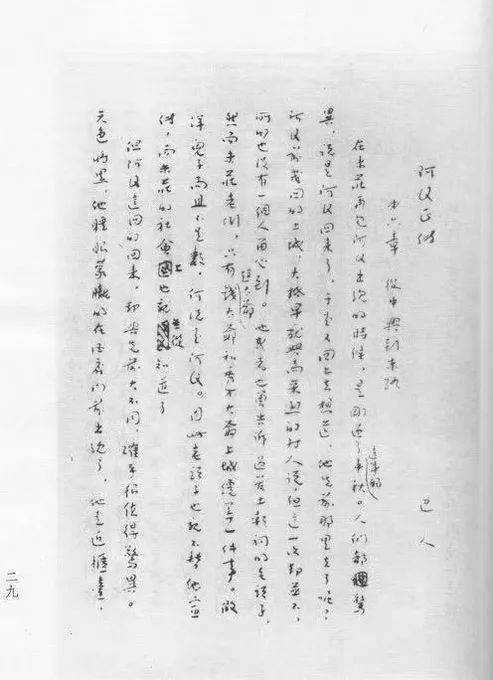 阿Q正傳
第六章 從中興到末路 巴人
在未莊再見阿Q出現的時候，是剛過了這年的中秋。人們都驚
異，說是阿Q回來了，于是又回上去想道，他先前那里去了呢？
阿Q前幾回的上城，大抵早就興高采烈的對人說，但這一次却並不，
所以也沒有一個人留心到。他或者也曾告訴過管土穀祠的老頭子，
然而未莊老例，只有趙太爺錢太爺和秀才大爺上城纔算一件事。假
洋鬼子尚且不足數，何況是阿Q。因此老頭子也就不替他宣
傳，而未莊的社會上也就無從知道了
但阿Q這回的回來，却與先前大不同，確乎很值得驚異。
天色將黑，他睡眼蒙朧的在酒店門前出現了，他走近櫃臺，
二九